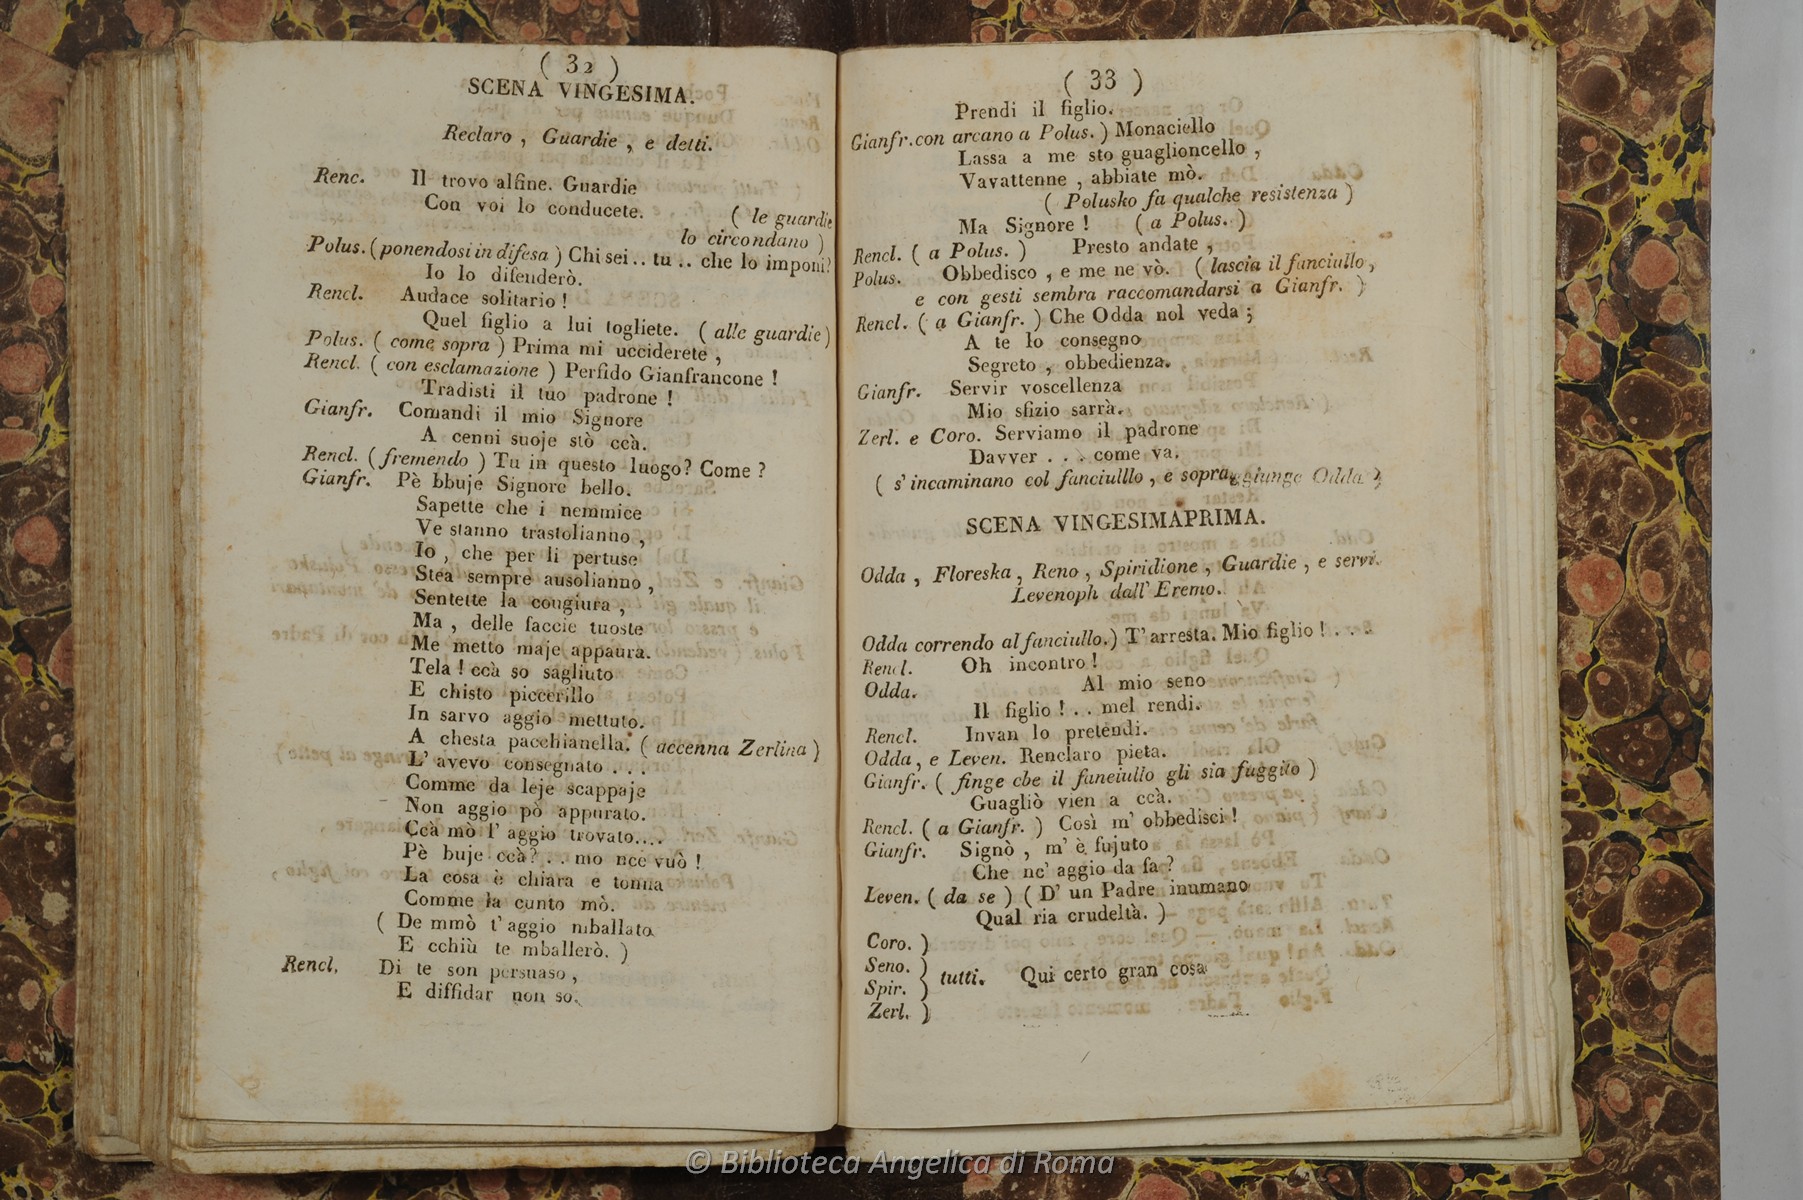 ( 32 )
SCENA VINGESIMA.
Reclaro , Guardie , e detti.
Renc. Il trovo alfine. Guardie
Con voi lo conducete. ( le guardie
lo circondano )
Polus. ( ponendosi in difesa ) Chi sei .. tu .. che lo imponi?
Io lo difenderò.
Rencl. Audace solitario !
Quel figlio a lui togliete. ( alle guardie )
Polus. ( come sopra ) Prima mi ucciderete ,
Rencl. ( con esclamazione ) Perfido Gianfrancone !
Tradisti il tuo padrone !
Gianfr. Comandi il mio Signore
A cenni suoje stò ccà.
Rencl. ( fremendo ) Tu in questo luogo? Come ?
Gianfr. Pè bbuje Signore bello.
Sapette che i nemmice
Ve stanno trastolianno ,
Io , che per li pertuse
Stea sempre ausolianno ,
Sentette la congiura ,
Ma , delle faccie tuoste
Me metto maje appaura.
Tela ! ccà so sagliuto
E chisto piccerillo
In sarvo aggio mettuto.
A chesta pacchianella. ( accenna Zerlina )
L' avevo consegnato . . .
Comme da leje scappaje
Non aggio pò appurato.
Ccà mò l' aggio trovato....
Pè buje ccà? . . mo nce vuò !
La cosa è chiara e tonna
Comme la cunto mò.
( De mmò t' aggio mballato
E cchiù te mballerò. )
Rencl. Di te son persuaso ,
E diffidar non so.
( 33 )
Prendi il figlio.
Gianfr. con arcano a Polus. ) Monaciello
Lassa a me sto guaglioncello ,
Vavattenne , abbiate mò.
( Polusko fa qualche resistenza )
Ma Signore ! ( a Polus. )
Rencl. ( a Polus. ) Presto andate ,
Polus. Obbedisco , e me ne vò. ( lascia il fanciullo ,
e con gesti sembra raccomandarsi a Gianfr. )
Rencl. ( a Gianfr. ) Che Odda nol veda ;
A te lo consegno
Segreto , obbedienza.
Gianfr. Servir voscellenza
Mio sfizio sarrà.
Zerl. e Coro. Serviamo il padrone
Davver . . . come va.
( s' incaminano col fanciulllo , e sopraggiunge Odda )
SCENA VINGESIMAPRIMA.
Odda , Floreska , Reno , Spiridione , Guardie , e servi.
Levenoph dall' Eremo.
Odda correndo al fanciullo. ) T' arresta. Mio figlio ! . . .
Rencl. Oh incontro !
Odda. Al mio seno
Il figlio ! . . mel rendi.
Rencl. Invan lo pretendi.
Odda , e Leven. Renclaro pieta.
Gianfr. ( finge che il funeiullo gli sia fuggito )
Guagliò vien a ccà.
Rencl. ( a Gianfr. ) Così m' obbedisci !
Gianfr. Signò , m' è fujuto
Che nc' aggio da fa ?
Leven. ( da se ) ( D' un Padre inumano
Qual ria crudeltà. )
Coro. )
Seno. )
Spir. ) tutti. Qui certo gran cosa
Zerl. )
© Biblioteca Angelica di Roma